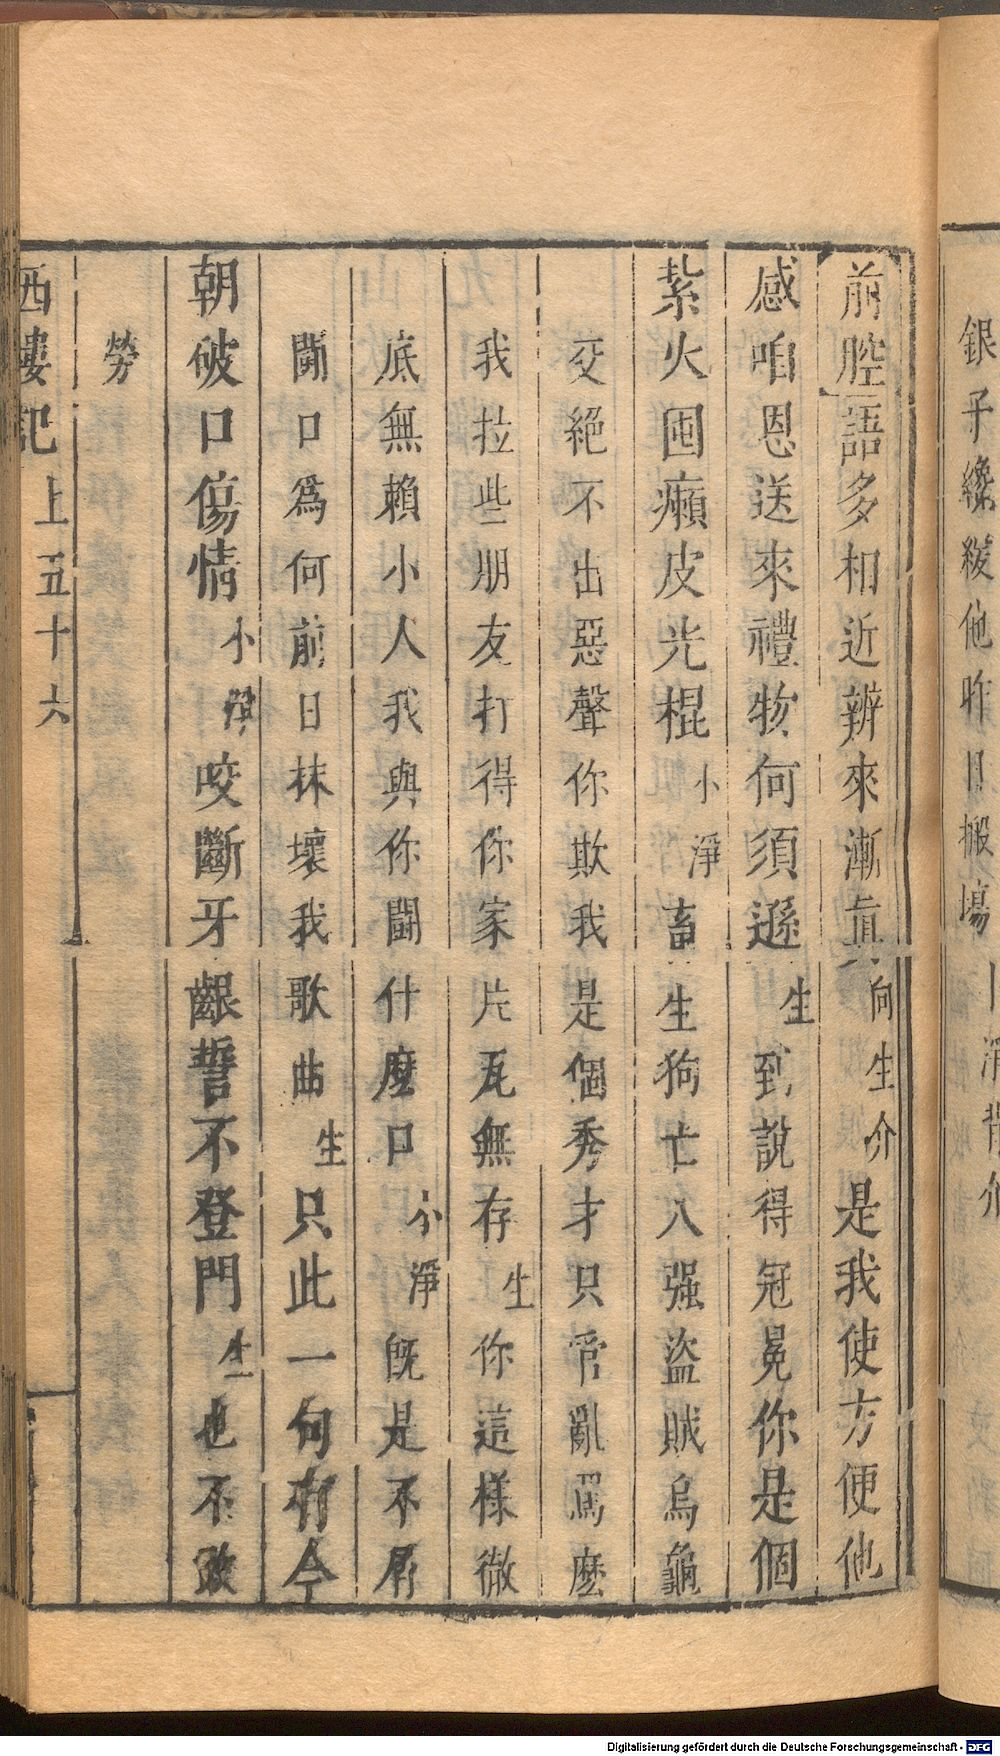 銀子纔緩他昨日搬場
淨背介
前腔語多相近辨來漸眞向生介是我使方便他
感咱恩送來禮物何須遜生到說得冠冕你是個
紮火囤癩皮光棍小淨畜生狗亡八强盜賊烏龜
交絕不出惡聲你欺我是個秀才只管亂罵麽
我拉些朋友打得你家片瓦無存生你這樣徹
底無賴小人我與你鬪什麽口小淨旣是不屑
鬪口爲何前日抹壞我歌曲生只此一句有今
朝破口傷情小淨咬斷牙齦誓不登門生也不敢
勞
西樓記上五十六
Digitalisierung gefördert durch die Deutsche Forschungsgemeinschaft - DFG